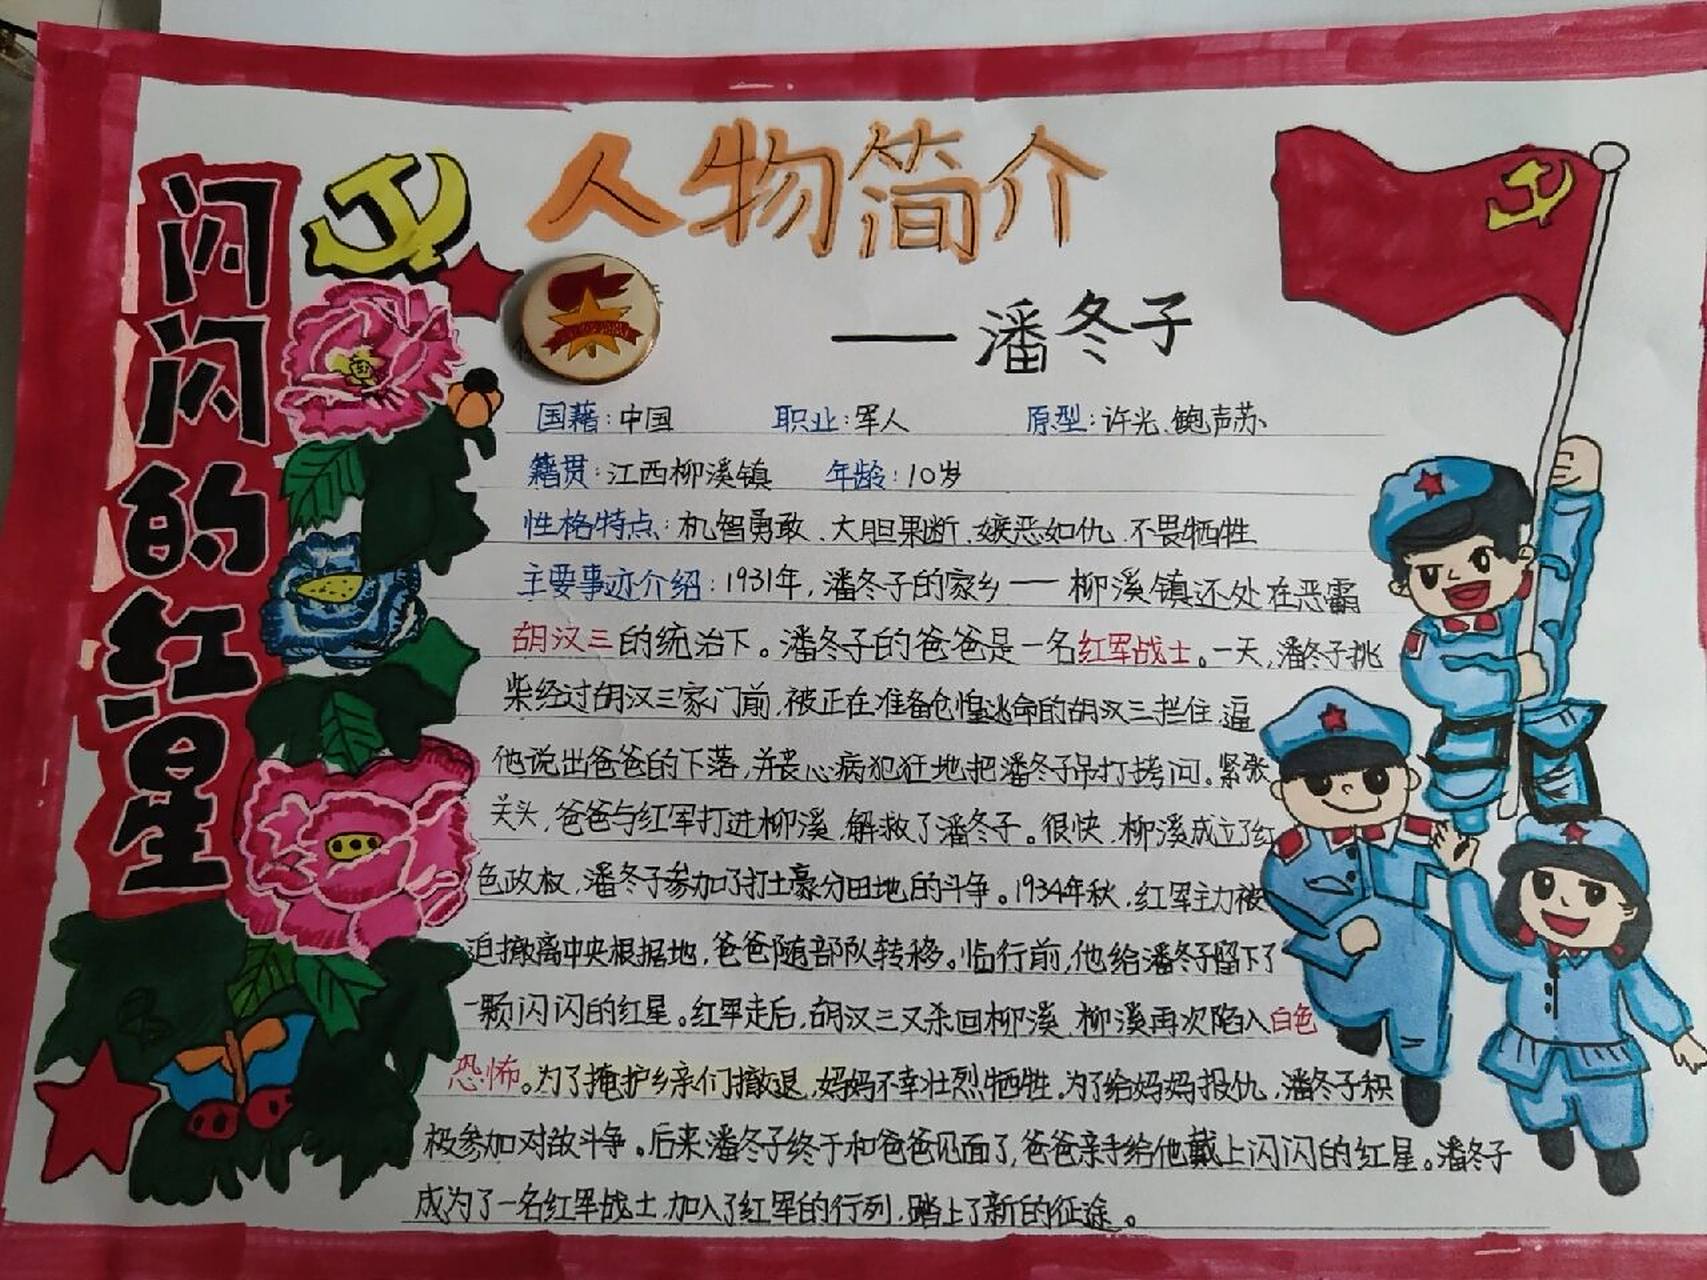 闪闪的红星
人物简介
——潘冬子
国藉：中国 职业：军人 原型：许光、鲍声苏
籍贯：江西柳溪镇 年龄：10岁
性格特点：机智勇敢、大胆果断、嫉恶如仇、不畏牺牲
主要事迹介绍：1931年，潘冬子的家乡——柳溪镇还处在恶霸
胡汉三的统治下。潘冬子的爸爸是一名红军战士。一天，潘冬子挑
柴经过胡汉三家门前，被正在准备仓惶逃命的胡汉三拦住，逼
他说出爸爸的下落，并丧心病犯狂地把潘冬子吊打拷问。紧张
关头，爸爸与红军打进柳溪，解救了潘冬子。很快，柳溪成立了红
色政权，潘冬子参加了打土豪分田地的斗争。1934年秋，红军主力被
迫撤离中央根据地，爸爸随部队转移。临行前，他给潘冬子留下了
一颗闪闪的红星。红军走后，胡汉三又杀回柳溪，柳溪再次陷入白色
恐怖。为了掩护乡亲们撤退，妈妈不幸壮烈牺牲。为了给妈妈报仇，潘冬子积
极参加对敌斗争。后来潘冬子终于和爸爸见面了，爸爸亲手给他戴上闪闪的红星。潘冬子
成为了一名红军战士，加入了红军的行列，踏上了新的征途。